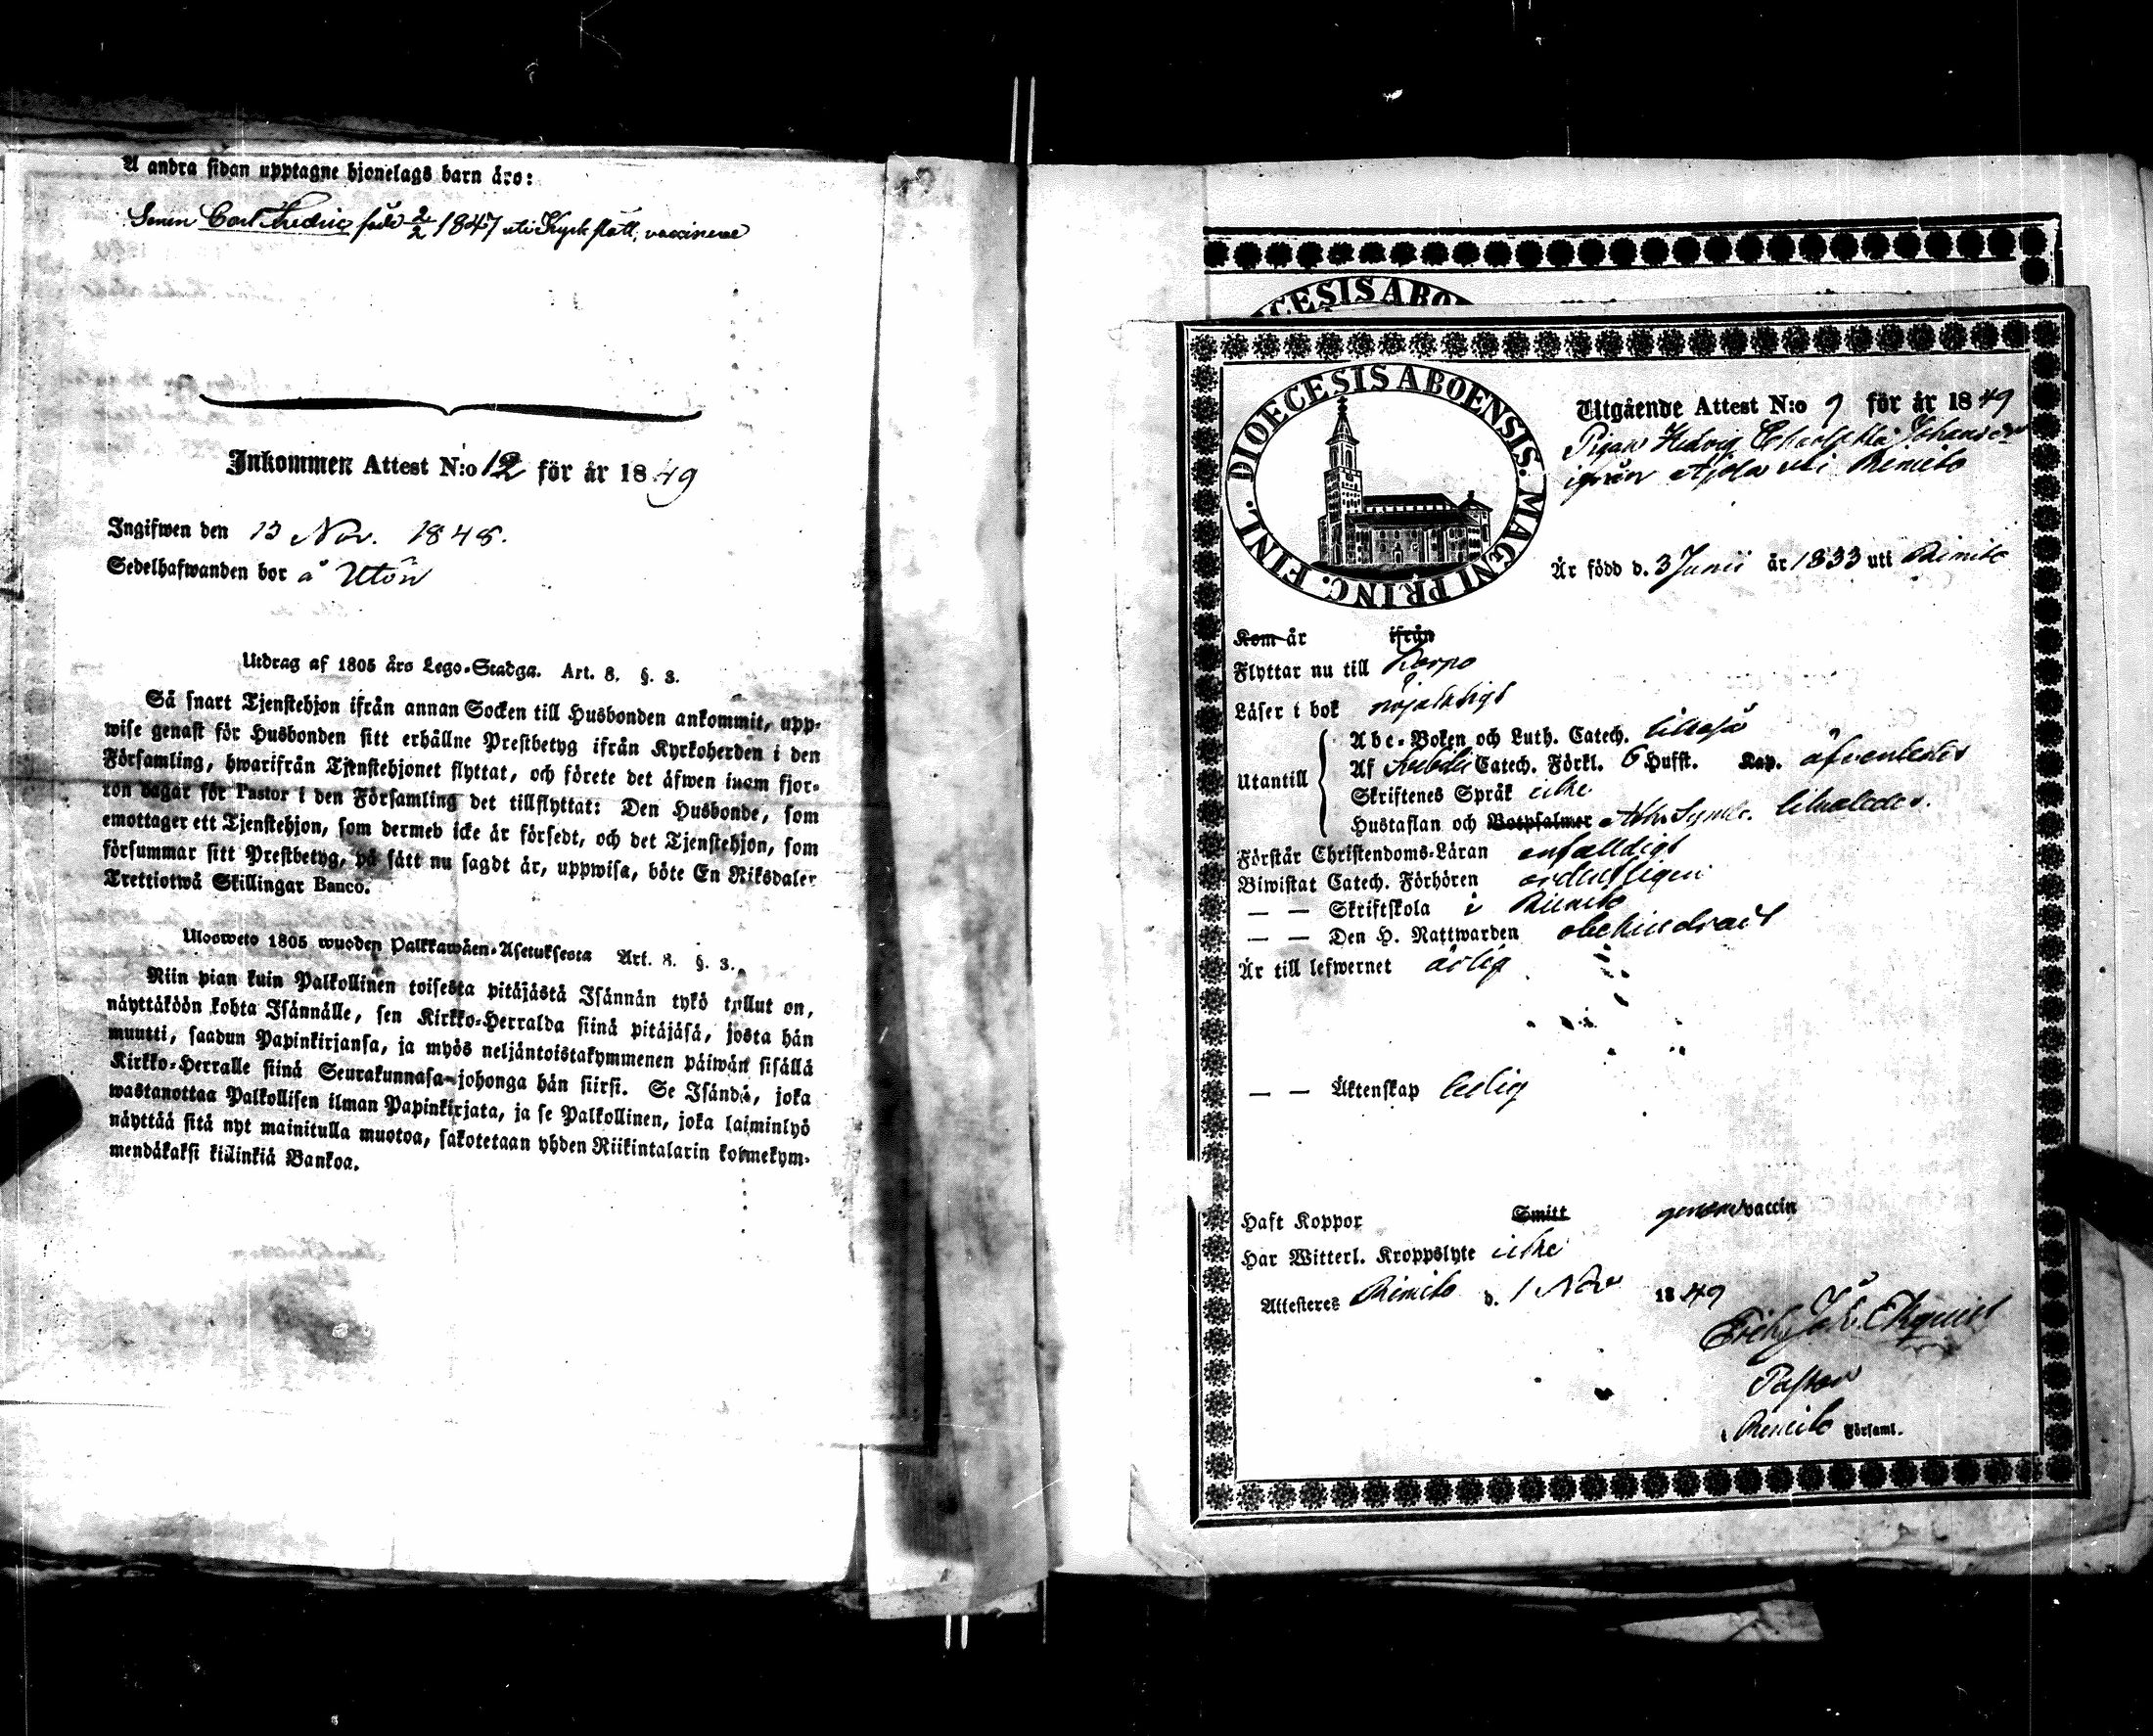 Å andra sidan upptagne hjonelags barn äro:
Sonen Carl Fredric född 2/2 1847 uti Kyrkslätt, vaccinerad
Inkommen Attest N:o 12 för år 1849
Ingifwen den 13 Nov. 1848.
Sedelhafwanden bor å Utön
Utdrag af 1805 års Lego-Stadga. Art. 8. §. 3.
Så snart Tjenstehjon ifrån annan Socken till Husbonden ankommit, upp-
wise genast för Husbonden sitt erhållne Prestbetyg ifrån Kyrkoherden i den
Församling, hwarifrån Tjenstehjonet flyttat, och förete det äfwen inom fjor-
ton dagar för Pastor i den Församling det tillflyttat: Den Husbonde, som
emottager ett Tjenstehjon, som dermed icke är försedt, och det Tjenstehjon, som
försummar sitt Prestbetyg, på sätt nu sagdt är, uppwisa, böte En Riksdaler
Trettiotwå Skillingar Banco.
Uloosweto 1805 wuoden Palkkawäen-Asetuksesta Art. 8. §. 3.
Niin pian kuin Palkollinen toisesta pitäjästä Isännän tykö tullut on,
näyttäköön kohta Isännälle, sen Kirkko-Herralda siinä pitäjäsä, josta hän
muutti, saadun Papinkirjansa, ja myös neljäntoistakymmenen päiwän sisällä
Kirkko-Herralle siinä Seurakunnasa johonga hän siirsi. Se Isändä, joka
wastanottaa Palkollisen ilman Papinkirjata, ja se Palkollinen, joka laiminlyö
näyttää sitä nyt mainitulla muotoa, sakotetaan yhden Riikintalarin kolmekym-
mendäkaksi killinkiä Bankoa.
DIOECESIS ABOENSIS. MAGNI PRINC. FINL.
Utgående Attest N:o 9 för år 1849
Pigan Hedvig Johans
ifrån uti Rimito
Är född d. 3 Junii år 1833 uti Rimito
Kom år ifrån
Flyttar nu till Korpo
Läser i bok nöjaktigt
Utantill
Abc-Boken och Luth. Catech. likaså
Af Svebelii Catech. Förkl. 6 Hufst. Kap. äfvenledes
Skriftenes Språk icke
Hustaflan och Botpsalmer Ath. Symb. likaledes.
Förstår Christendoms-Läran enfaldigt
Biwistat Catech. Förhören ordentligen
— — Skriftskola i Rimito
— — Den H. Nattwarden obehindradt
Är till lefwernet ärlig
— — Äktenskap ledig
Haft Koppor Smitt genom vaccin
Har Witterl. Kroppslyte icke
Attesteres Rimito d. 1 Nov 1849
Eric Jak. Ekquist
Pastor
i Rimito Församl.